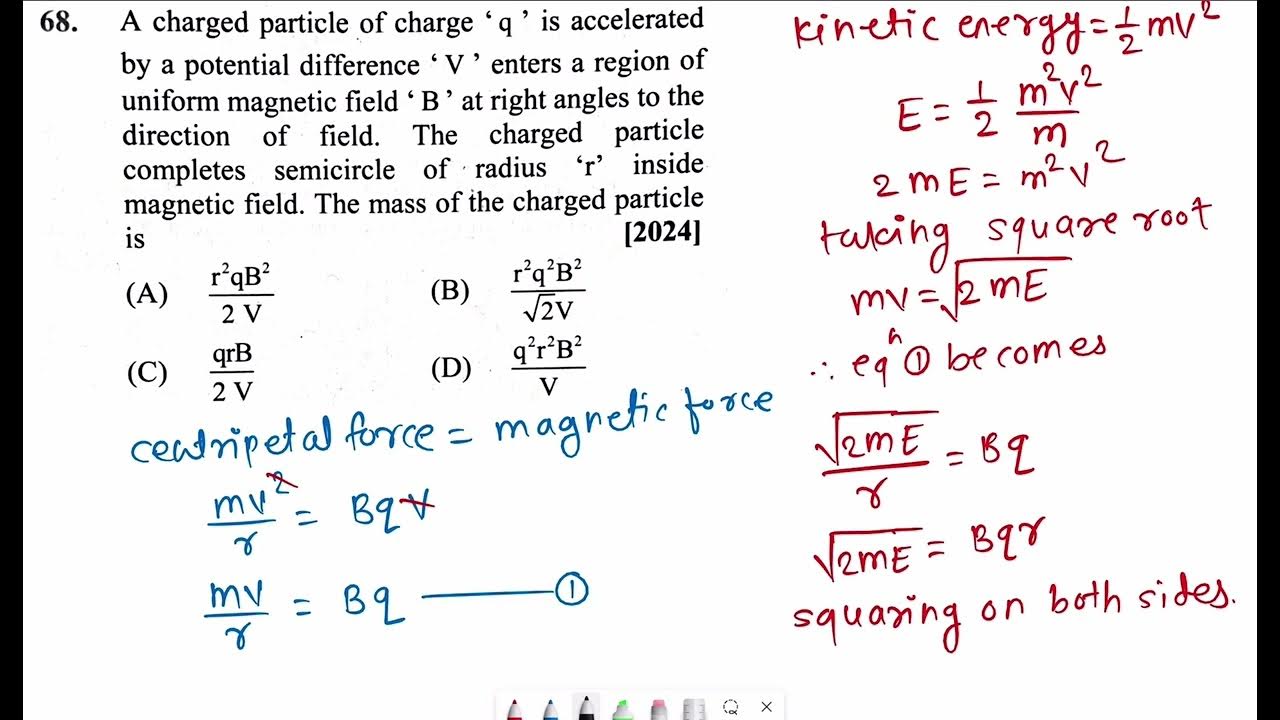 68. A charged particle of charge ‘ q ’ is accelerated
by a potential difference ‘ V ’ enters a region of
uniform magnetic field ‘ B ’ at right angles to the
direction of field. The charged particle
completes semicircle of radius ‘r’ inside
magnetic field. The mass of the charged particle
is [2024]
(A) r²qB² / 2 V (B) r²q²B² / √2V
(C) qrB / 2 V (D) q²r²B² / V
centripetal force = magnetic force
mv² / r = BqV
mv / r = Bq ——— ①
kinetic energy = 1/2 mv²
E = 1/2 m²v² / m
2mE = m²v²
taking square root
mv = √2mE
∴ eqⁿ ① becomes
√2mE / r = Bq
√2mE = Bqr
squaring on both sides.